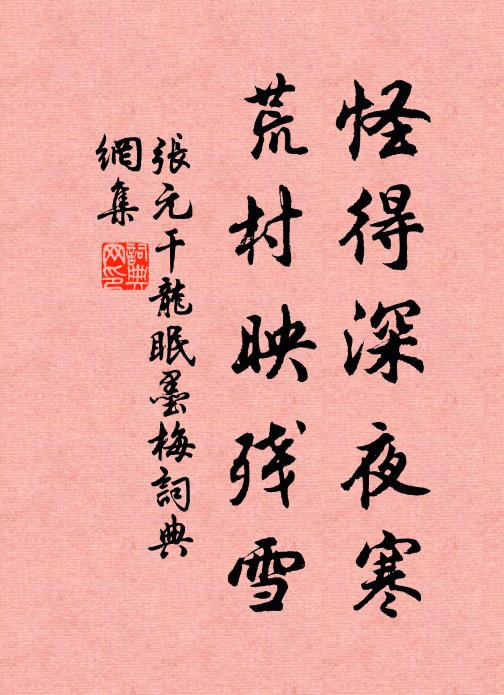 怪得深夜寒
荒村映残雪
張元干龍眠墨梅詞典
網集
詞典
网印